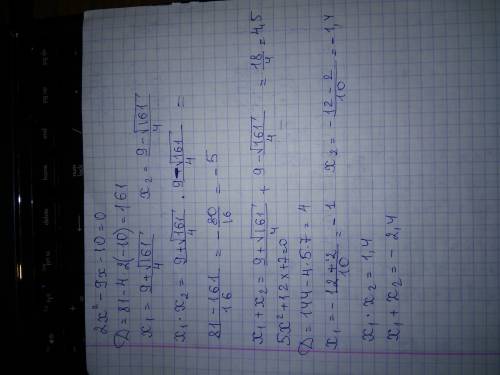 2x² - 9x - 10 = 0
D = 81 - 4·2(-10) = 161
x₁ = (9 + √161)/4 x₂ = (9 - √161)/4
x₁ · x₂ = (9 + √161)/4 · (9 - √161)/4 =
(81 - 161)/16 = - 80/16 = - 5
x₁ + x₂ = (9 + √161)/4 + (9 - √161)/4 = 18/4 = 4,5
5x² + 12x + 7 = 0
D = 144 - 4·5·7 = 4
x₁ = (-12 + 2)/10 = - 1 x₂ = (-12 - 2)/10 = - 1,4
x₁ · x₂ = 1,4
x₁ + x₂ = - 2,4